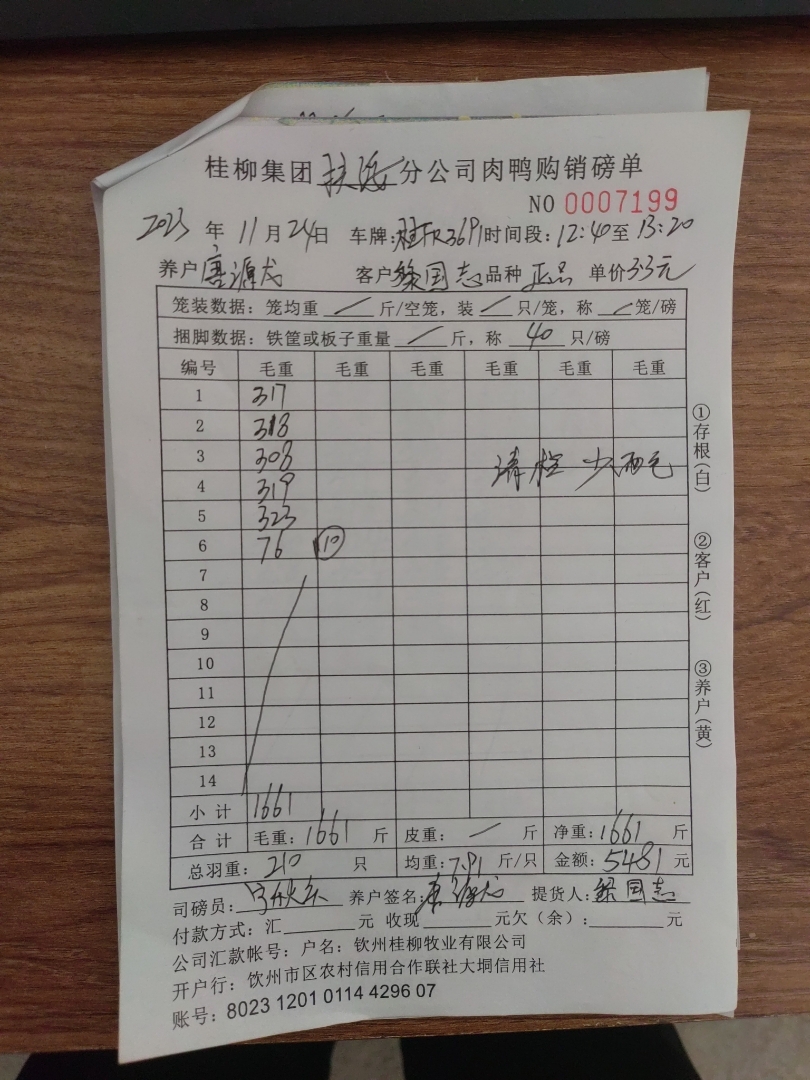 桂柳集团 分公司肉鸭购销磅单
NO 0007199
2023 年 11 月 24 日 车牌:桂FR3691 时间段:12:40 至 13:20
养户 唐源龙 客户 黎国志 品种 正品 单价 3.3元
笼装数据:笼均重 / 斤/空笼,装 / 只/笼,称 / 笼/磅
捆脚数据:铁筐或板子重量 / 斤,称 40 只/磅
编号 毛重 毛重 毛重 毛重 毛重 毛重
1 317
2 318
3 308
4 319
5 323
6 76 10
7
8
9
10
11
12
13
14
小计 1661
合计 毛重:1661 斤 皮重: / 斤 净重:1661 斤
总羽重:210 只 均重:7.91 斤/只 金额:5481 元
司磅员: 养户签名:唐源龙 提货人:黎国志
付款方式:汇 元 收现 元欠(余): 元
公司汇款帐号:户名:钦州桂柳牧业有限公司
开户行:钦州市区农村信用合作联社大垌信用社
账号:8023 1201 0114 4296 07
①存根(白)
②客户(红)
③养户(黄)